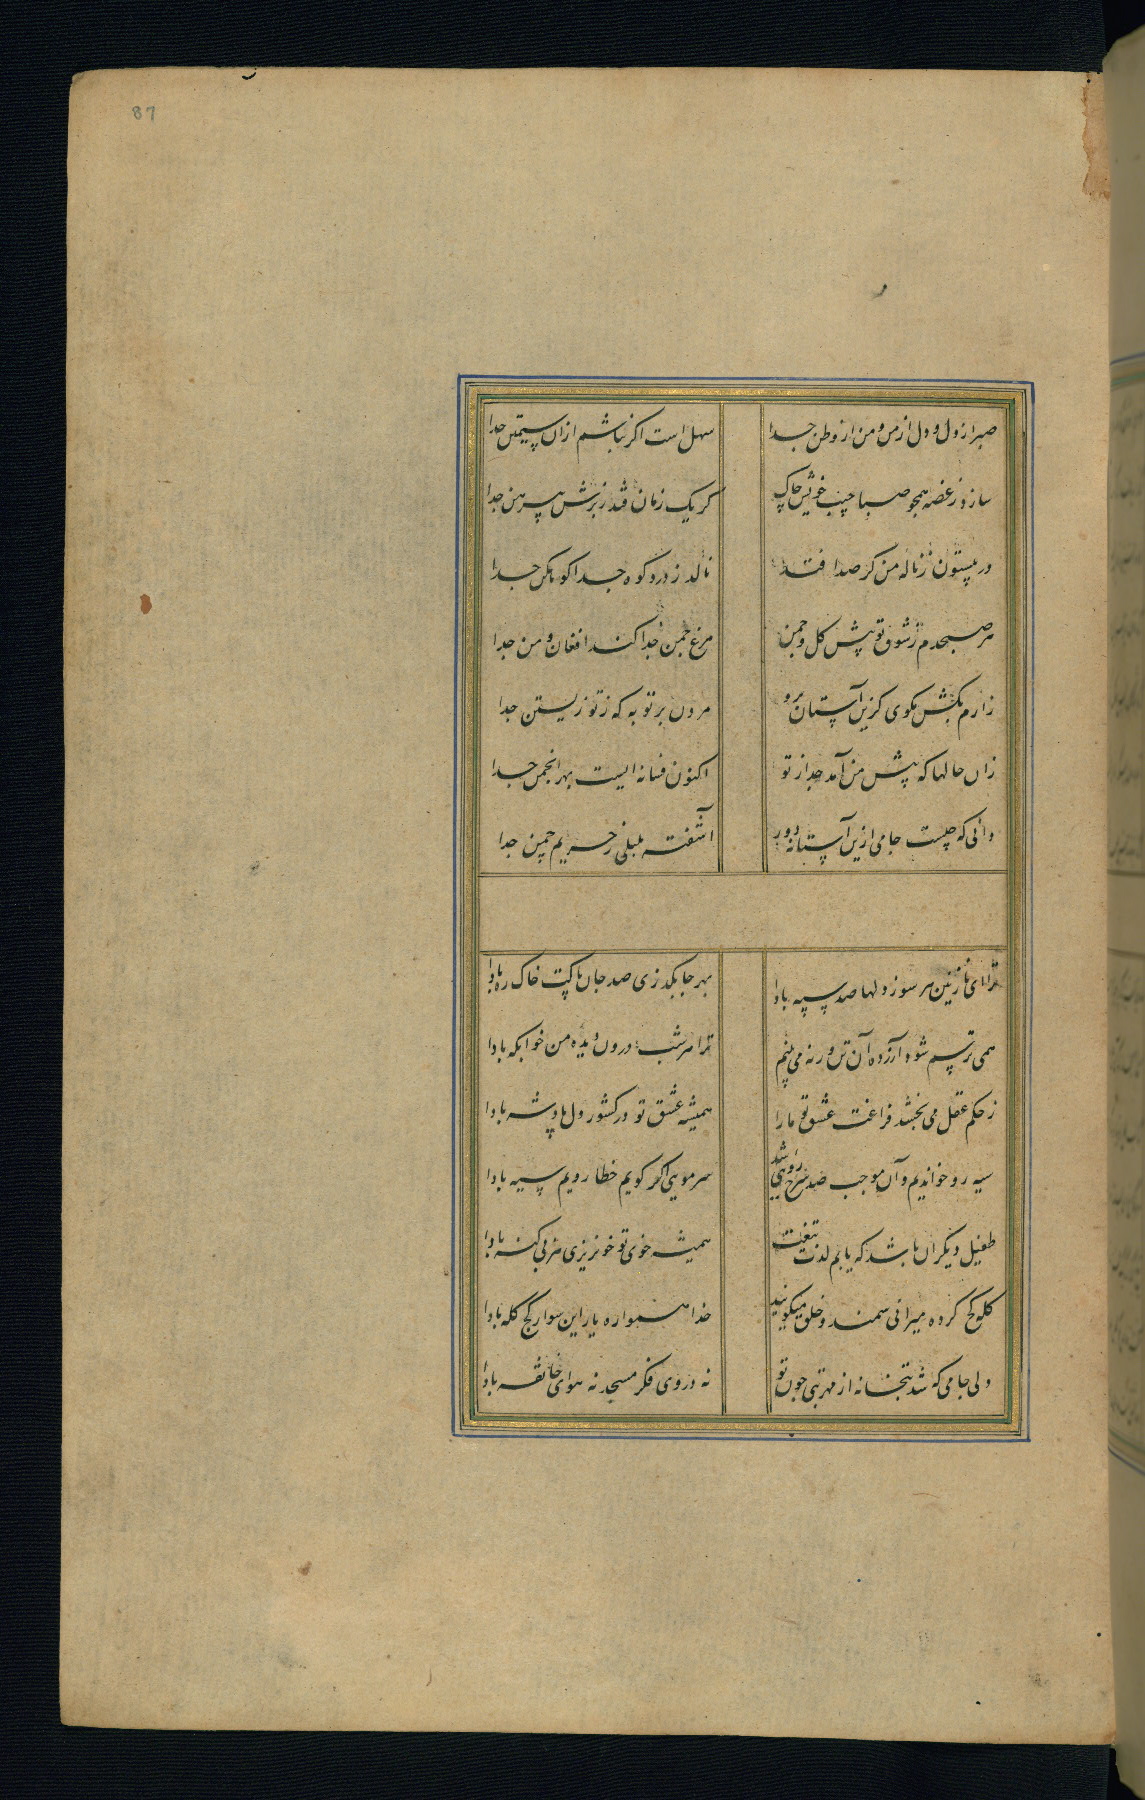 87
صبر از دل و دل از من و من از وطن جدا
سهل است اکر نباشم ازان سیمتن جدا
سازد ز غصه همچو صبا جیب خویش چاک
کر یک زمان فتد ز برش پیرهن جدا
در بیستون ز ناله من کر صدا فتد
نالد ز درد کوه جدا کوهکن جدا
هر صبحدم ز شوق تو پیش کل و چمن
مرغ چمن جدا کند افغان و من جدا
زارم بکش مکوی کزین آستان برو
مردن بر تو به که ز تو زیستن جدا
زان حالها که پیش من آمد جدا ز تو
اکنون فسانه ایست بهر انجمن جدا
دانی که چیست جامی ازین آستانه دور
آشفته بلبلی ز حریم چمن جدا
ترا ای نازنین هر سو ز دلها صد سپه بادا
بهر جا بکذری صد جان پاکت خاک ره بادا
همی ترسم شود آزرده آن تن ورنه می بینم
ترا هر شب درون دیده من خوابکه بادا
ز حکم عقل می بخشد فراغت عشق تو ما را
همیشه عشق تو در کشور دل پادشه بادا
سیه رو خواندیم و آن موجب صد سرخ رویی شد
سر مویی اکر کویم خطا رویم سیه بادا
طفیل دیکران باشد که یابم لذت تیغت
همیشه خوی تو خونریزی هر بی کنه بادا
کله کج کرده میرانی سمند و خلق میکویند
خدا همواره یار این سوار کج کله بادا
ولی جامی که شد بتخانه از مهر بتی چون تو
نه در وی فکر مسجد نه هوای خانقه بادا